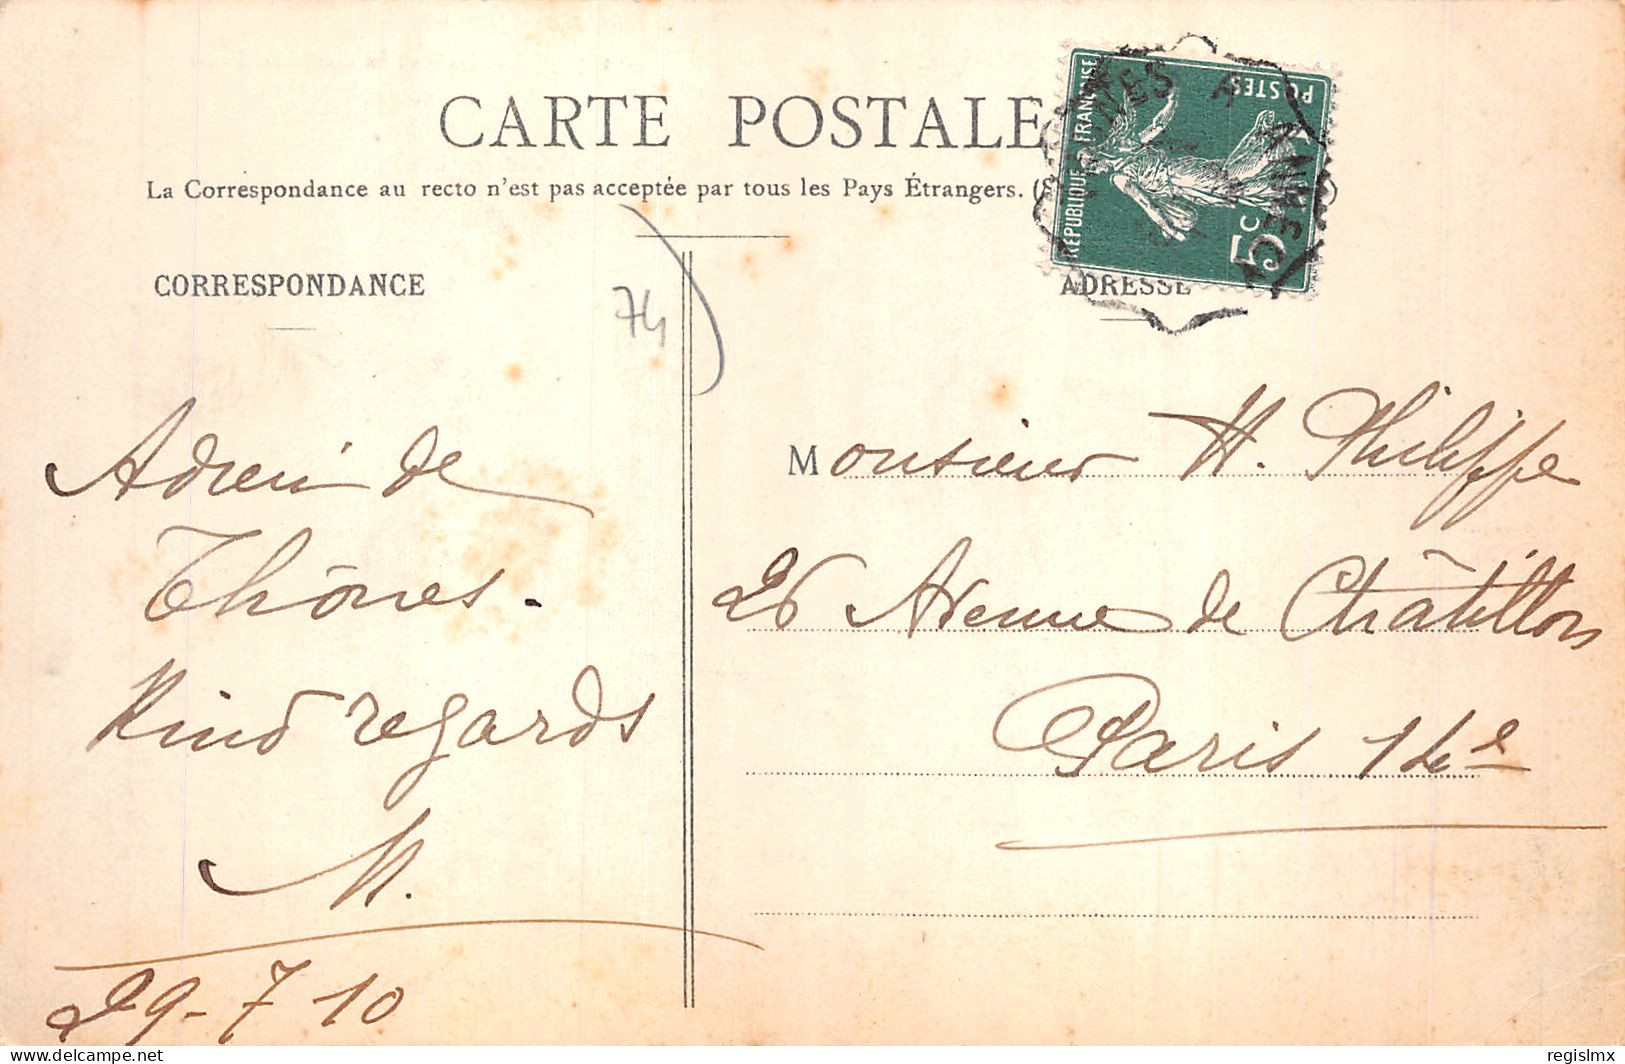 CARTE POSTALE
La Correspondance au recto n'est pas acceptée par tous les Pays Étrangers. (
RÉPUBLIQUE FRANÇAISE
POSTES
5c
A ANNECY
CORRESPONDANCE
ADRESSE
74
Adieu de
Thônes.
Kind regards
29-7 10
Monsieur H. Philippe
26 Avenue de Châtillon
Paris 14e
delcampe.net
regislmx